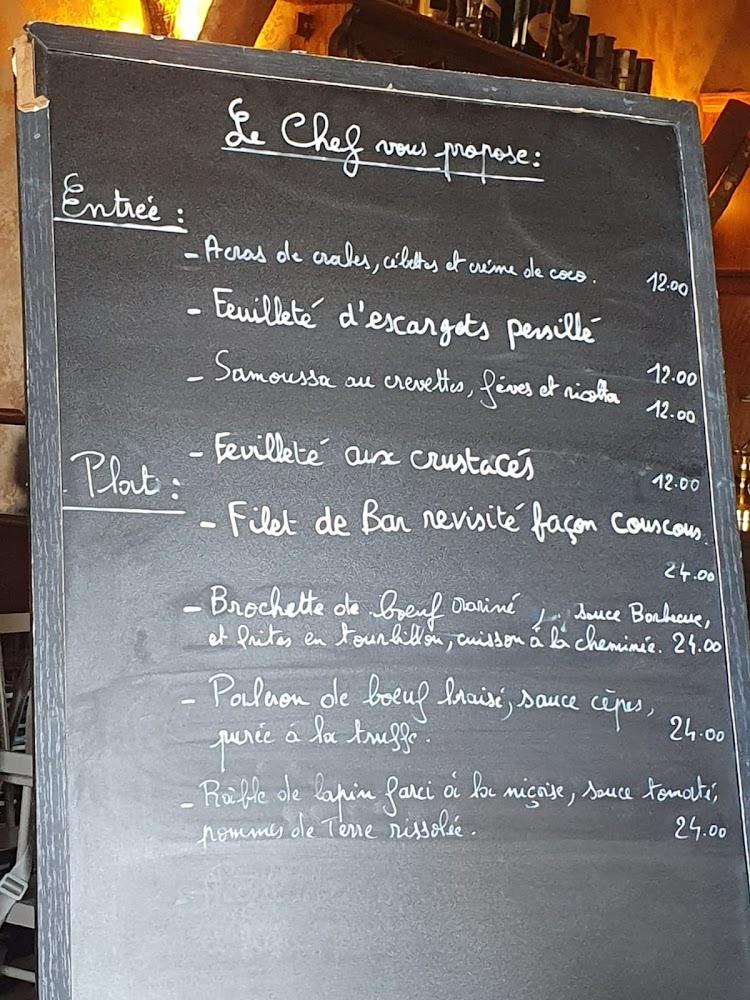 Le Chef vous propose:
Entrée :
- Acras de crabes, cébettes et crème de coco. 12.00
- Feuilleté d'escargots persillé
12.00
- Samoussa au crevettes, fèves et ricotta 12.00
- Feuilleté aux crustacés
12.00
Plat :
- Filet de Bar revisité façon couscous.
24.00
- Brochette de boeuf mariné sauce Barbecue,
et frites en tourbillon, cuisson à la cheminée. 24.00
- Paleron de boeuf braisé, sauce cèpes,
purée à la truffe. 24.00
- Râble de lapin farci à la niçoise, sauce tomate,
pommes de Terre rissolée. 24.00